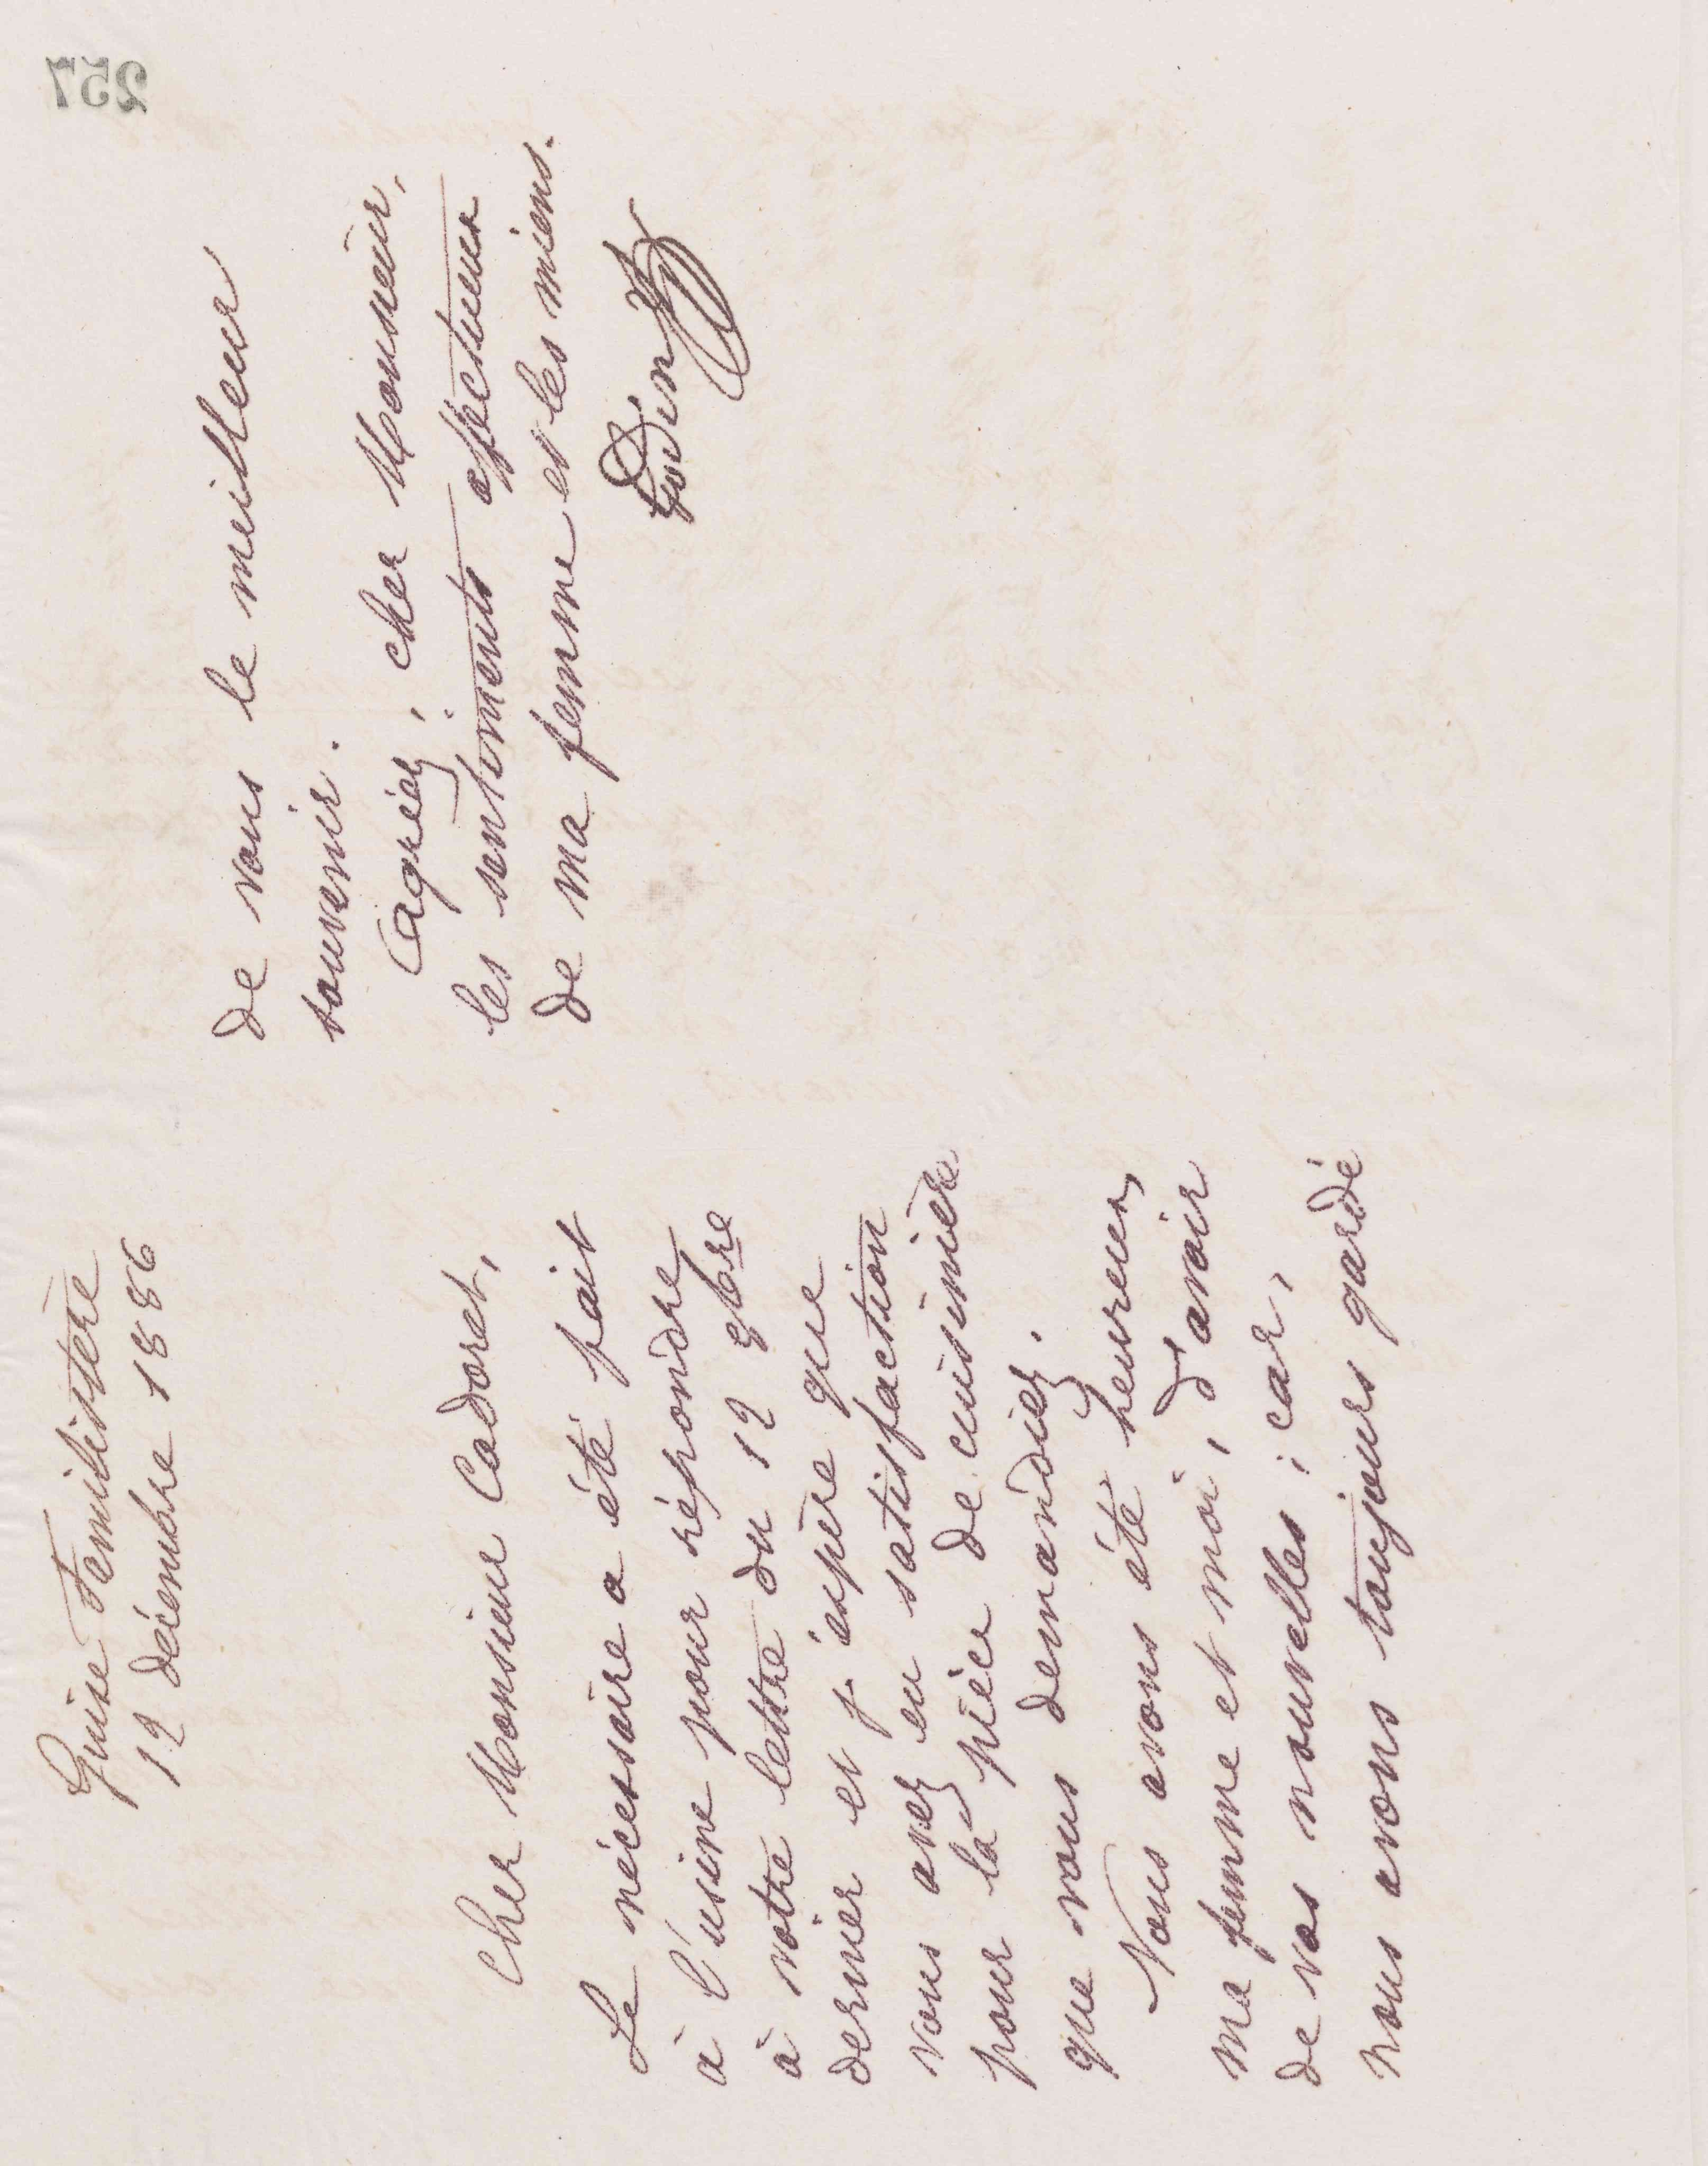 Guise Familistère
12 décembre 1886
Cher Monsieur Cadoret,
Le nécessaire a été fait
à l'usine pour répondre
à votre lettre du 12 9bre
dernier et j'espère que
vous avez eu satisfaction
pour la pièce de cuisinière
que vous demandiez.
Nous avons été heureux,
ma femme et moi, d'avoir
de vos nouvelles ; car,
nous avons toujours gardé
de vous le meilleur
souvenir.
Agréez, cher Monsieur,
les sentiments affectueux
de ma femme et les miens.
Godin
257